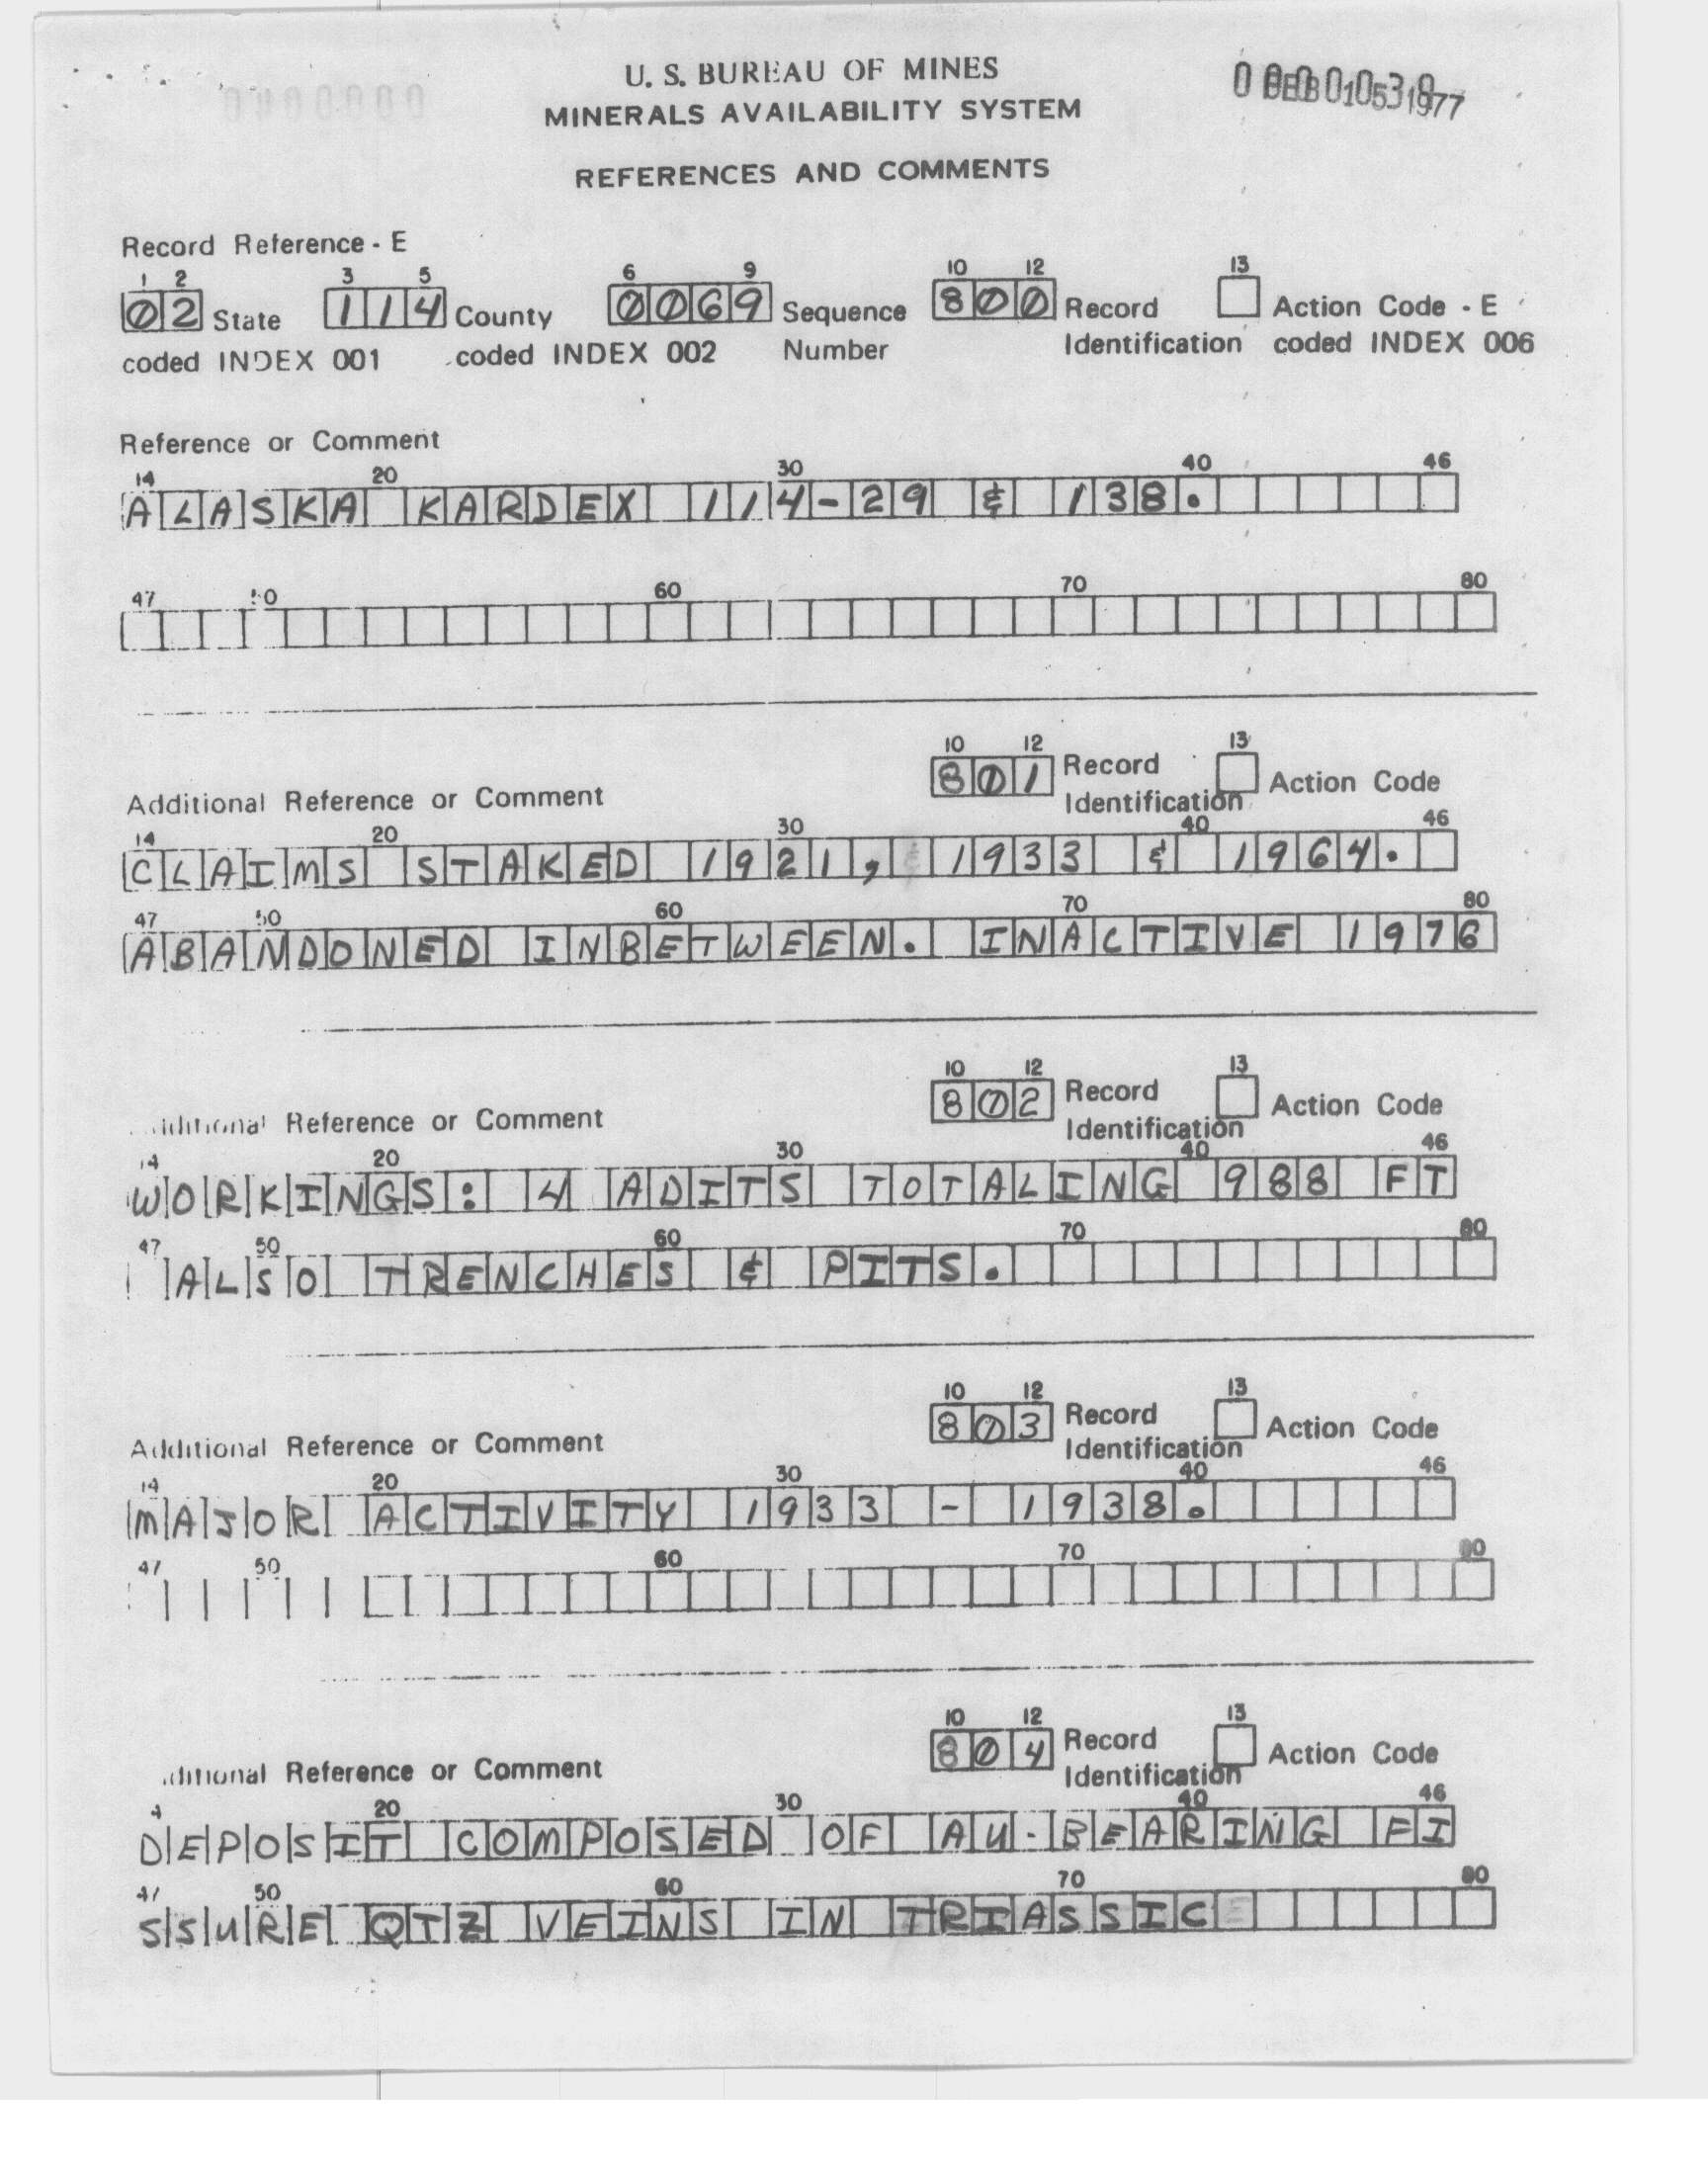 U. S. BUREAU OF MINES
MINERALS AVAILABILITY SYSTEM
REFERENCES AND COMMENTS
Record Reference - E
1 2 3 5 6 9 10 12 13
02 State 114 County 0069 Sequence 800 Record Action Code - E
coded INDEX 001 coded INDEX 002 Number Identification coded INDEX 006
Reference or Comment
14 20 30 40 46
ALASKA KARDEX 114-29 & 138.
47 50 60 70 80
10 12 13
801 Record Action Code
Additional Reference or Comment Identification
14 20 30 40 46
CLAIMS STAKED 1921, 1933 & 1964.
47 50 60 70 80
ABANDONED INBETWEEN. INACTIVE 1976
10 12 13
802 Record Action Code
Additional Reference or Comment Identification
14 20 30 40 46
WORKINGS: 4 ADITS TOTALING 988 FT
47 50 60 70 80
ALSO TRENCHES & PITS.
10 12 13
803 Record Action Code
Additional Reference or Comment Identification
14 20 30 40 46
MAJOR ACTIVITY 1933 - 1938.
47 50 60 70 80
10 12 13
804 Record Action Code
ditional Reference or Comment Identification
4 20 30 40 46
DEPOSIT COMPOSED OF AU-BEARING FI
47 50 60 70 80
SSURE QTZ VEINS IN TRIASSIC